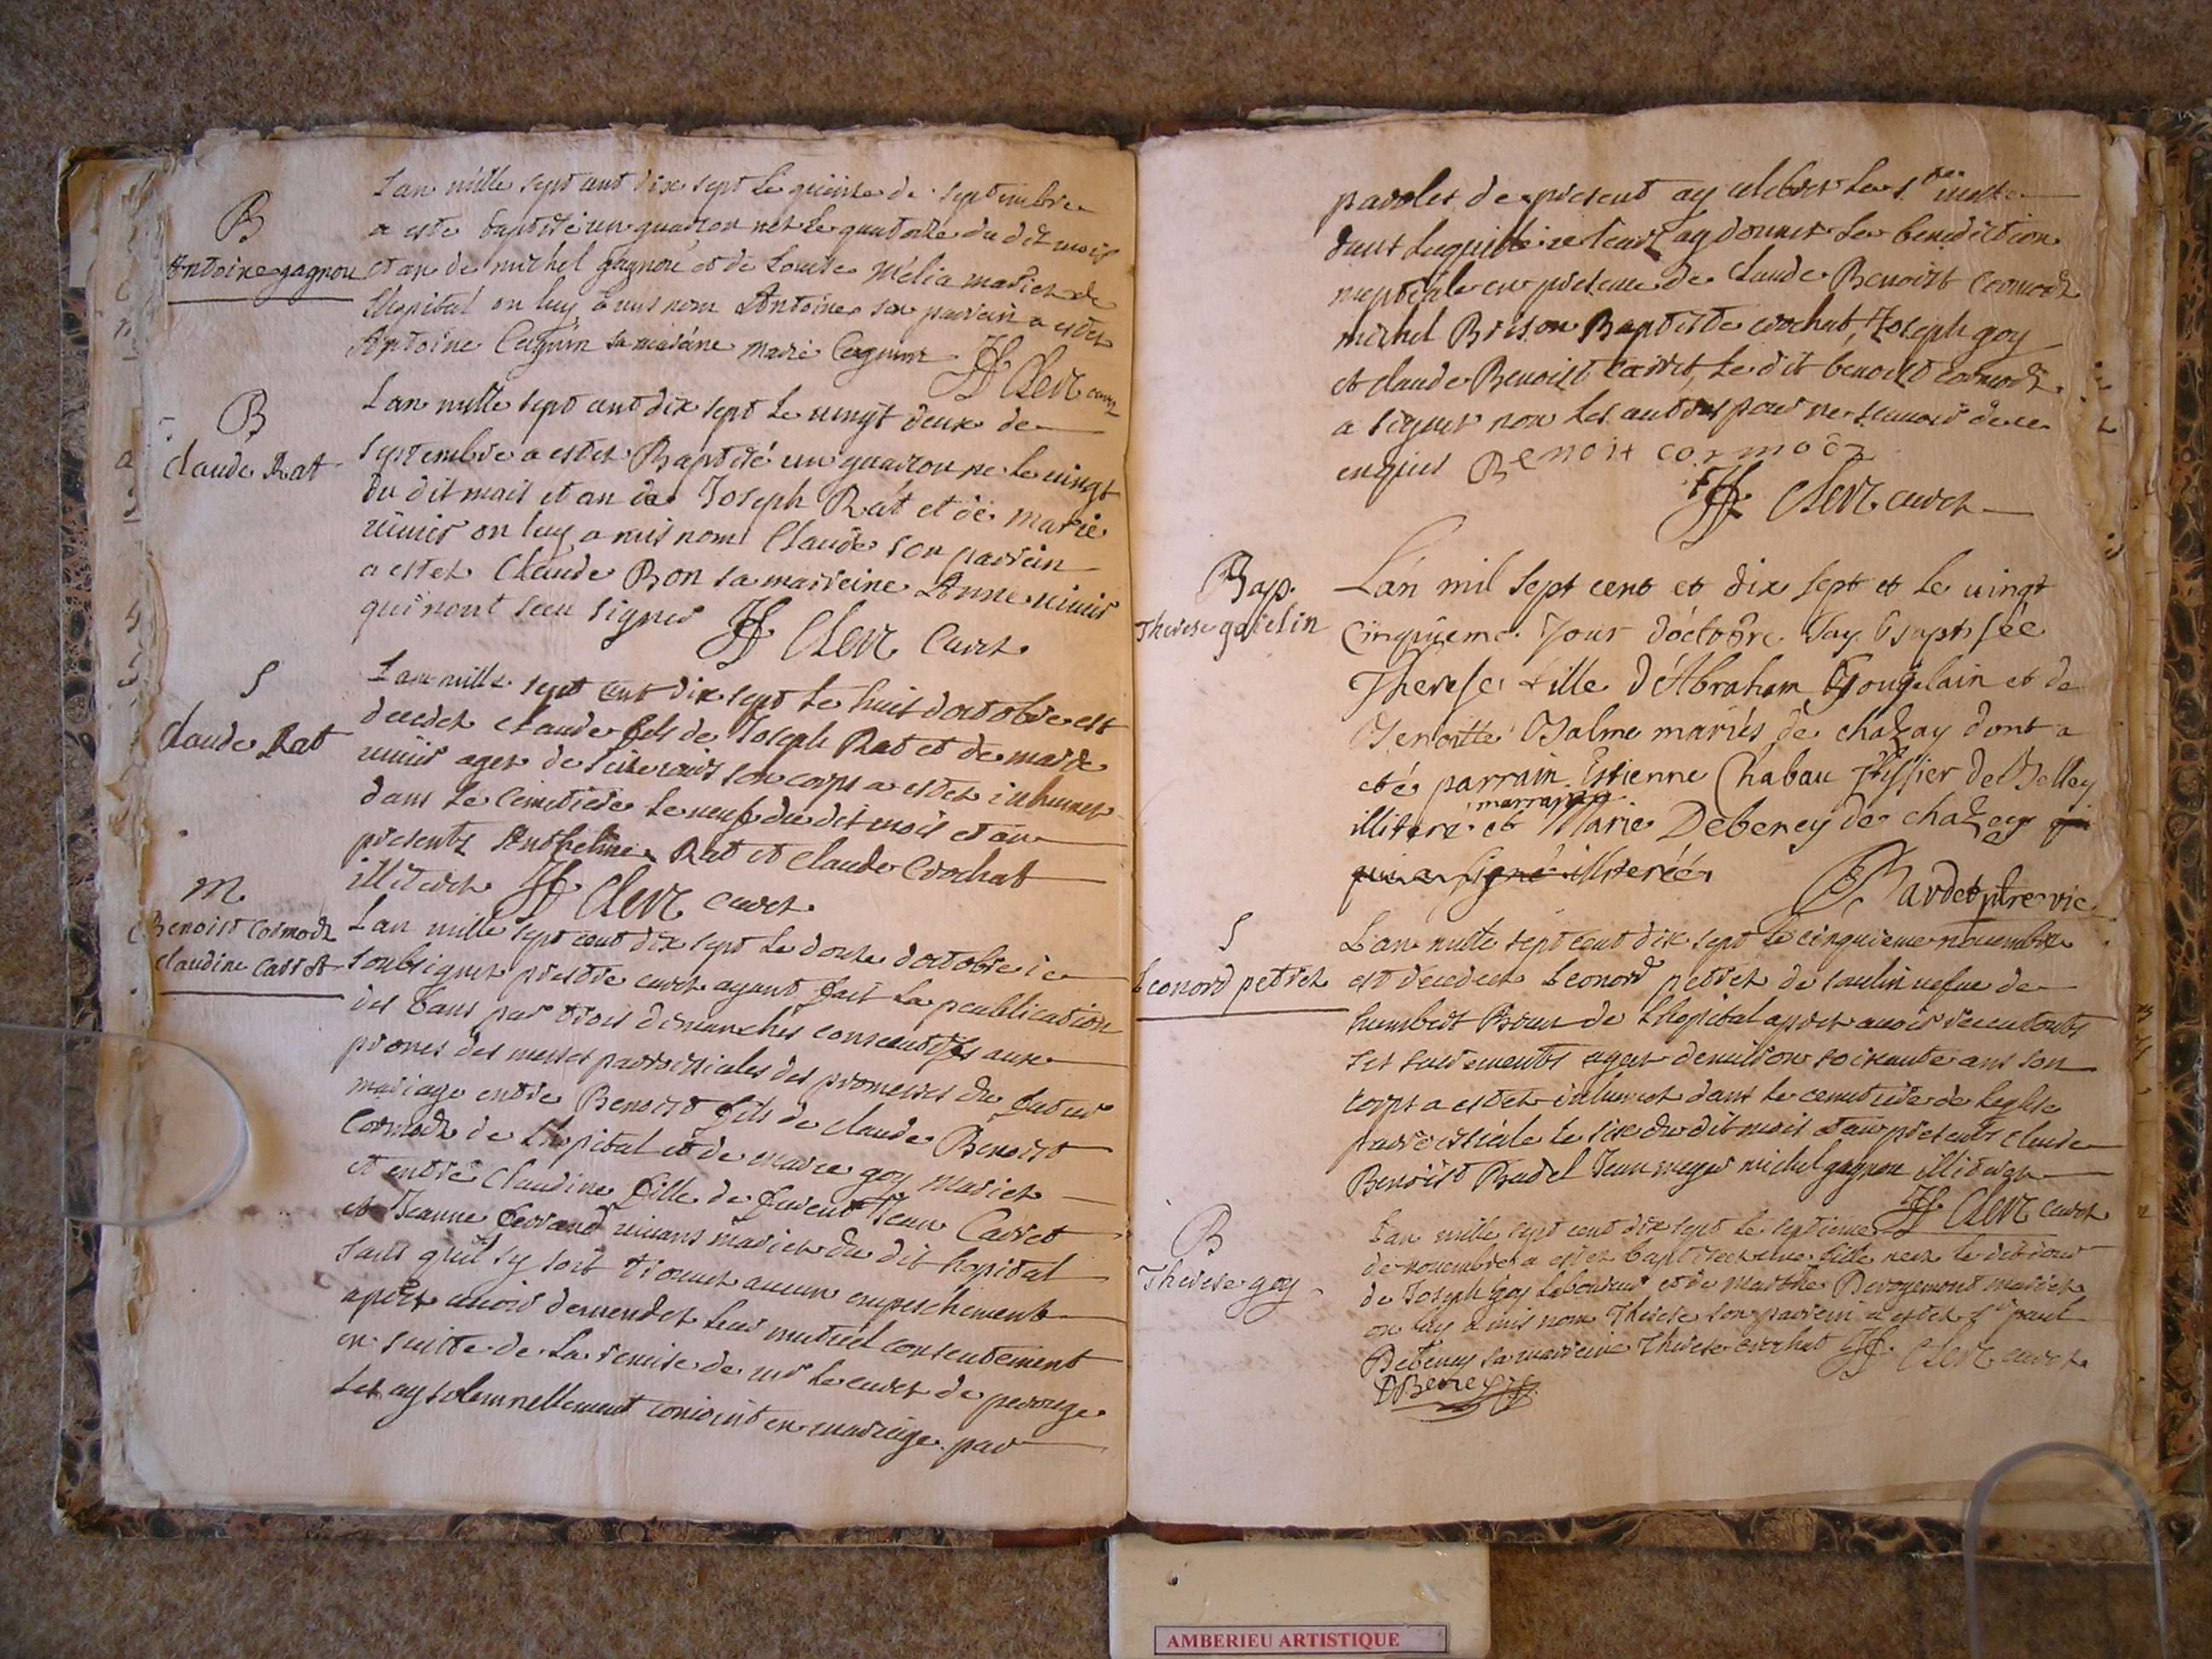 B
Antoine gagnou
Lan mille sept cent dix sept le quinse de septembre
a este baptisé un guarson net le quatorse du dit mois
et an de michel gagnou et de Louise Melia mariet de
Lhopital on luy a mis nom Antoine son parrein a estet
Antoine Cagnin sa mareine Marie
Clerc curet
B
Claude Rat
Lan mille sept cent dix sept le vingt deux de
septembre a estet Baptisé un guarson ne le vingt
du dit mois et an de Joseph Rat et de Marie
on luy a mis nom Claude son parrein
a estet Claude Bon sa marreine Anne
qui nont sceu signer Clerc Curet
S
Claude Rat
Lan mille sept cent dix sept le huit doctobre est
decedet Claude fils de Joseph Rat et de marie
aget de seise iours son corps a estet inhumet
dans le cimetiere le neuf du dit mois et an
presents Anthelme Rat et Claude Crochat
illiteret Clerc curet
M
Benoist Cormodz
Claudine Carret
Lan mille sept cent dix sept le douse doctobre ie
soubsignet prestre curet ayant fait la publication
des bans par trois dimanches consecutifs aux
prones des messes parroissiales des promesses du futur
mariage entre Benoist fils de Claude Benoist
Cormodz de Lhopital et de marie goy mariet
et entre Claudine fille de Jean Carret
et Jeanne ferrand vivans mariet du dit hopital
sans quil sy soit trouvet aucun empeschement
apret avoir demendet leur mutuel consentement
en suitte de la remise de mr le curet de perouge
les ay solemnellement conioint en mariage par
paroles de present ay celebret la ste messe
dans laquelle ie leurs ay donnet la benediction
nuptiale en presence de Claude Benoist Cormodz
michel Brison Baptiste crochat, Joseph goy
et claude Benoist Carret, le dit benoist Cormodz
a signet non les autres pour ne scavoir de ce
enquis Benoit cormodz
Clerc curet
Bap.
Therese
Lan mil sept cent et dix sept et le vingt
cinquieme Jour doctobre Jay baptisée
Therese fille d'Abraham Gougelain et de
Benoitte Balme mariés de chazay dont a
eté parrain Estienne Chabau de Belley
illiteré et marraine Marie Debeney de chazey
qui a signé illiterée
Bardet ptre vic
S
Leonord petret
Lan mille sept cent dix sept le cinquieme novembre
est decedeet Leonord petret de vefve de
humbert Brun de Lhopital apret avoir receu touts
ses sacrements aget denviron soixante ans son
corps a estet inhumet dans le cemetiere de leglise
parroissiale le six du dit mois et an presents claude
Benoist Jean michel gagnou illiteret
Clerc curet
B
Therese goy
Lan mille sept cent dix sept le septieme
de novembre a estet baptiseet une fille neet le dit iour
de Joseph goy laboureur et de Marthe mariet
on luy a mis nom Therese son parrein a estet sr paul
Debeney sa marreine Therese crochat Clerc curet
DBeney
AMBERIEU ARTISTIQUE